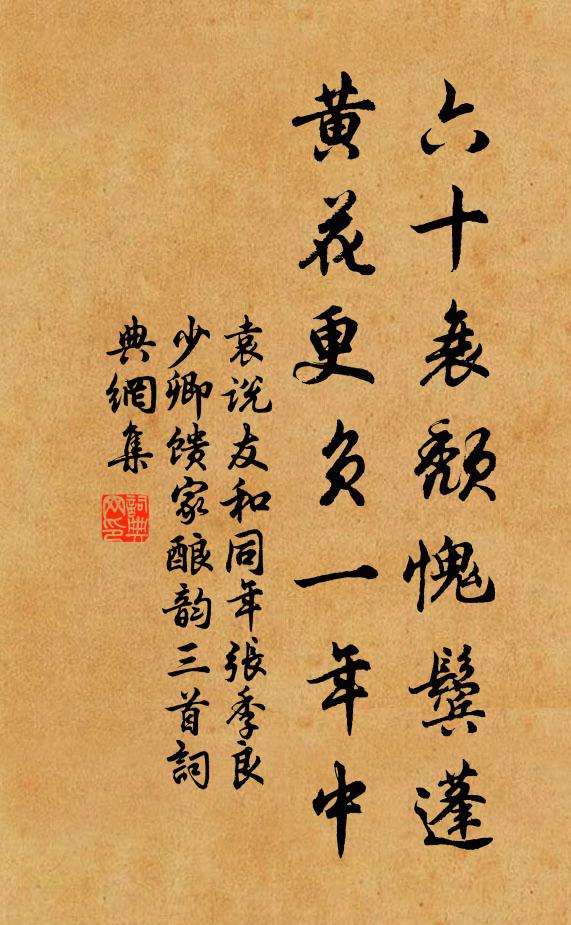 六十衰颓愧鬓蓬
黄花更负一年中
袁说友和同年張季良
少卿馈家酿韵三首詞
典網集
詞典
网印